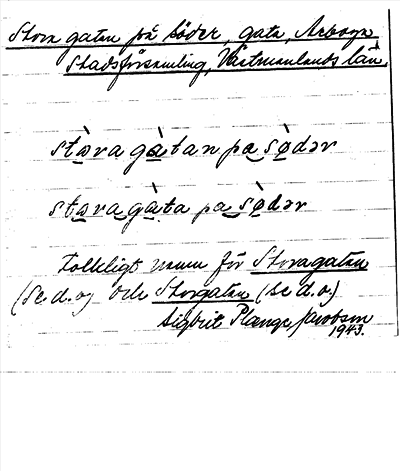 Stora gatan på Söder, gata, Arboga
Stadsförsamling, Västmanlands län.
stòra gàtan pa sòdər
stora gàta pa sòdər
Folkligt namn för Storagatan
(se d.o) och Storgatan (se d.o.)
Sigbrit Plænge Jacobson
1943.